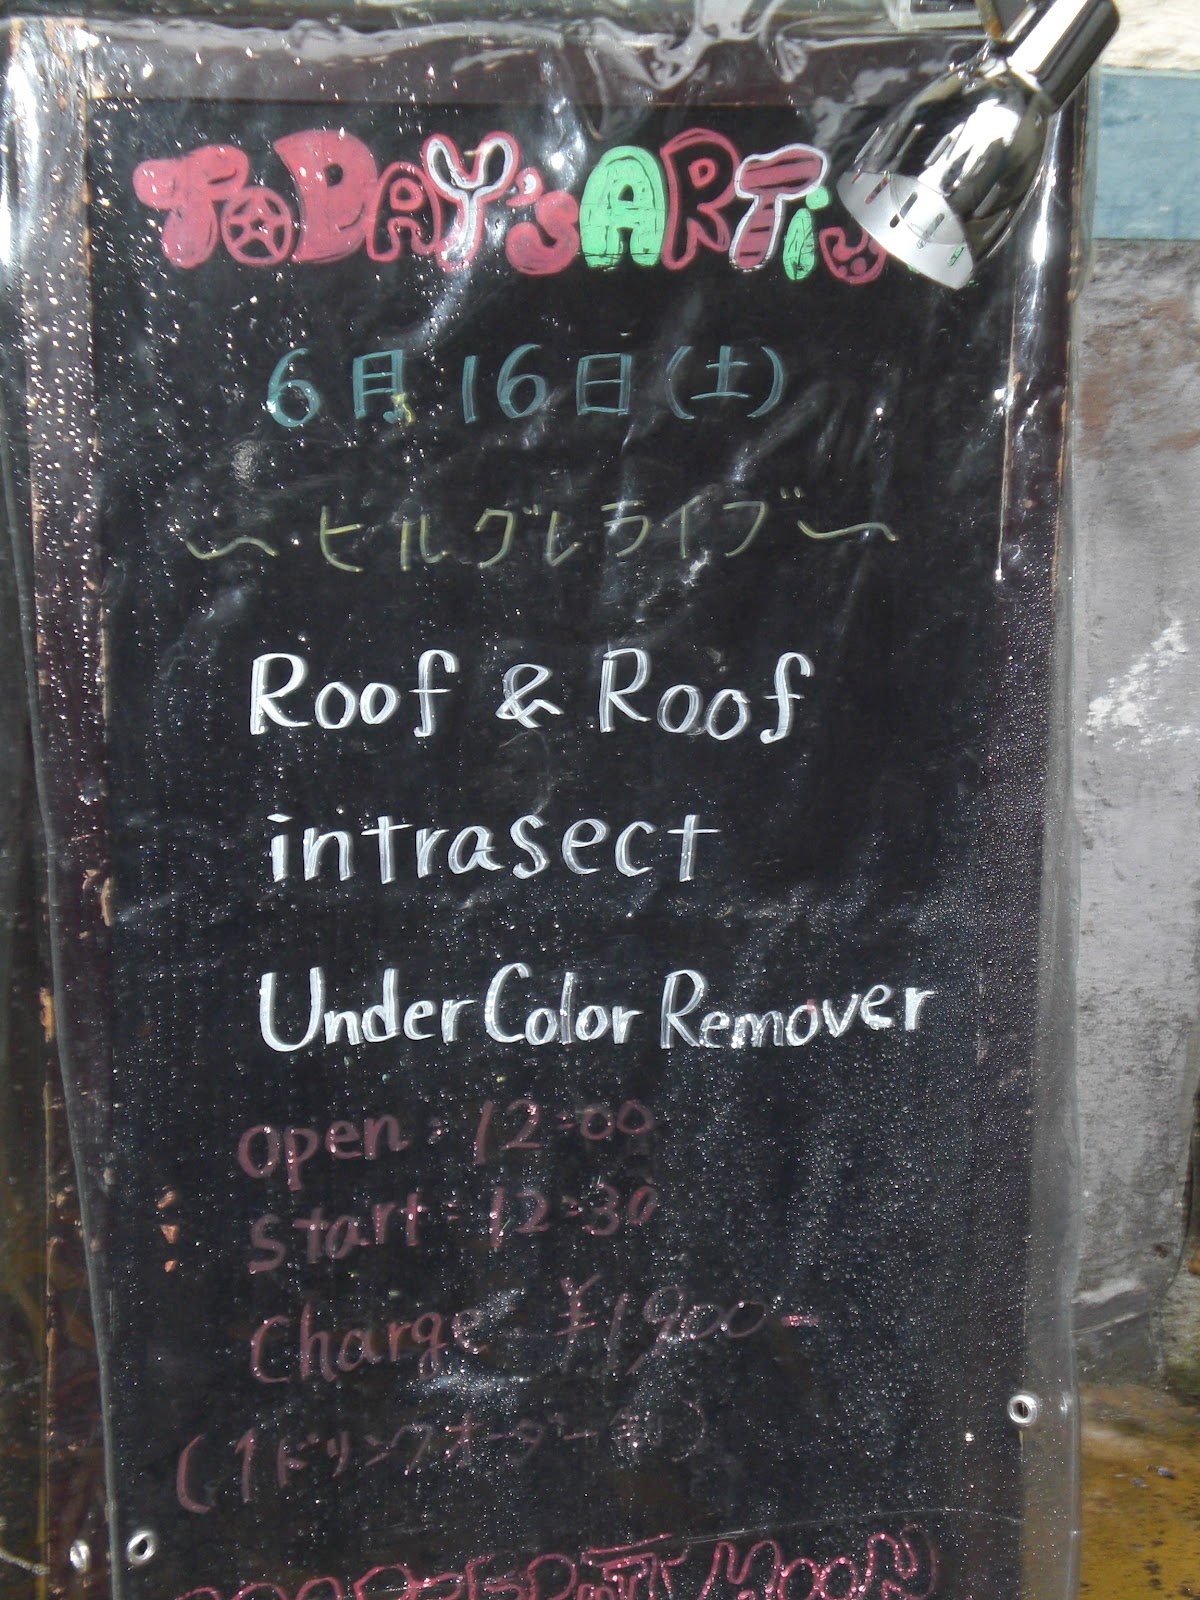 ToDAY'S ARTiS
6月16日(土)
〜ヒルグレライブ〜
Roof & Roof
intrasect
Under Color Remover
open : 12:00
start : 12:30
charge ¥1,900-
(1ドリンクオーダー制)
MOON